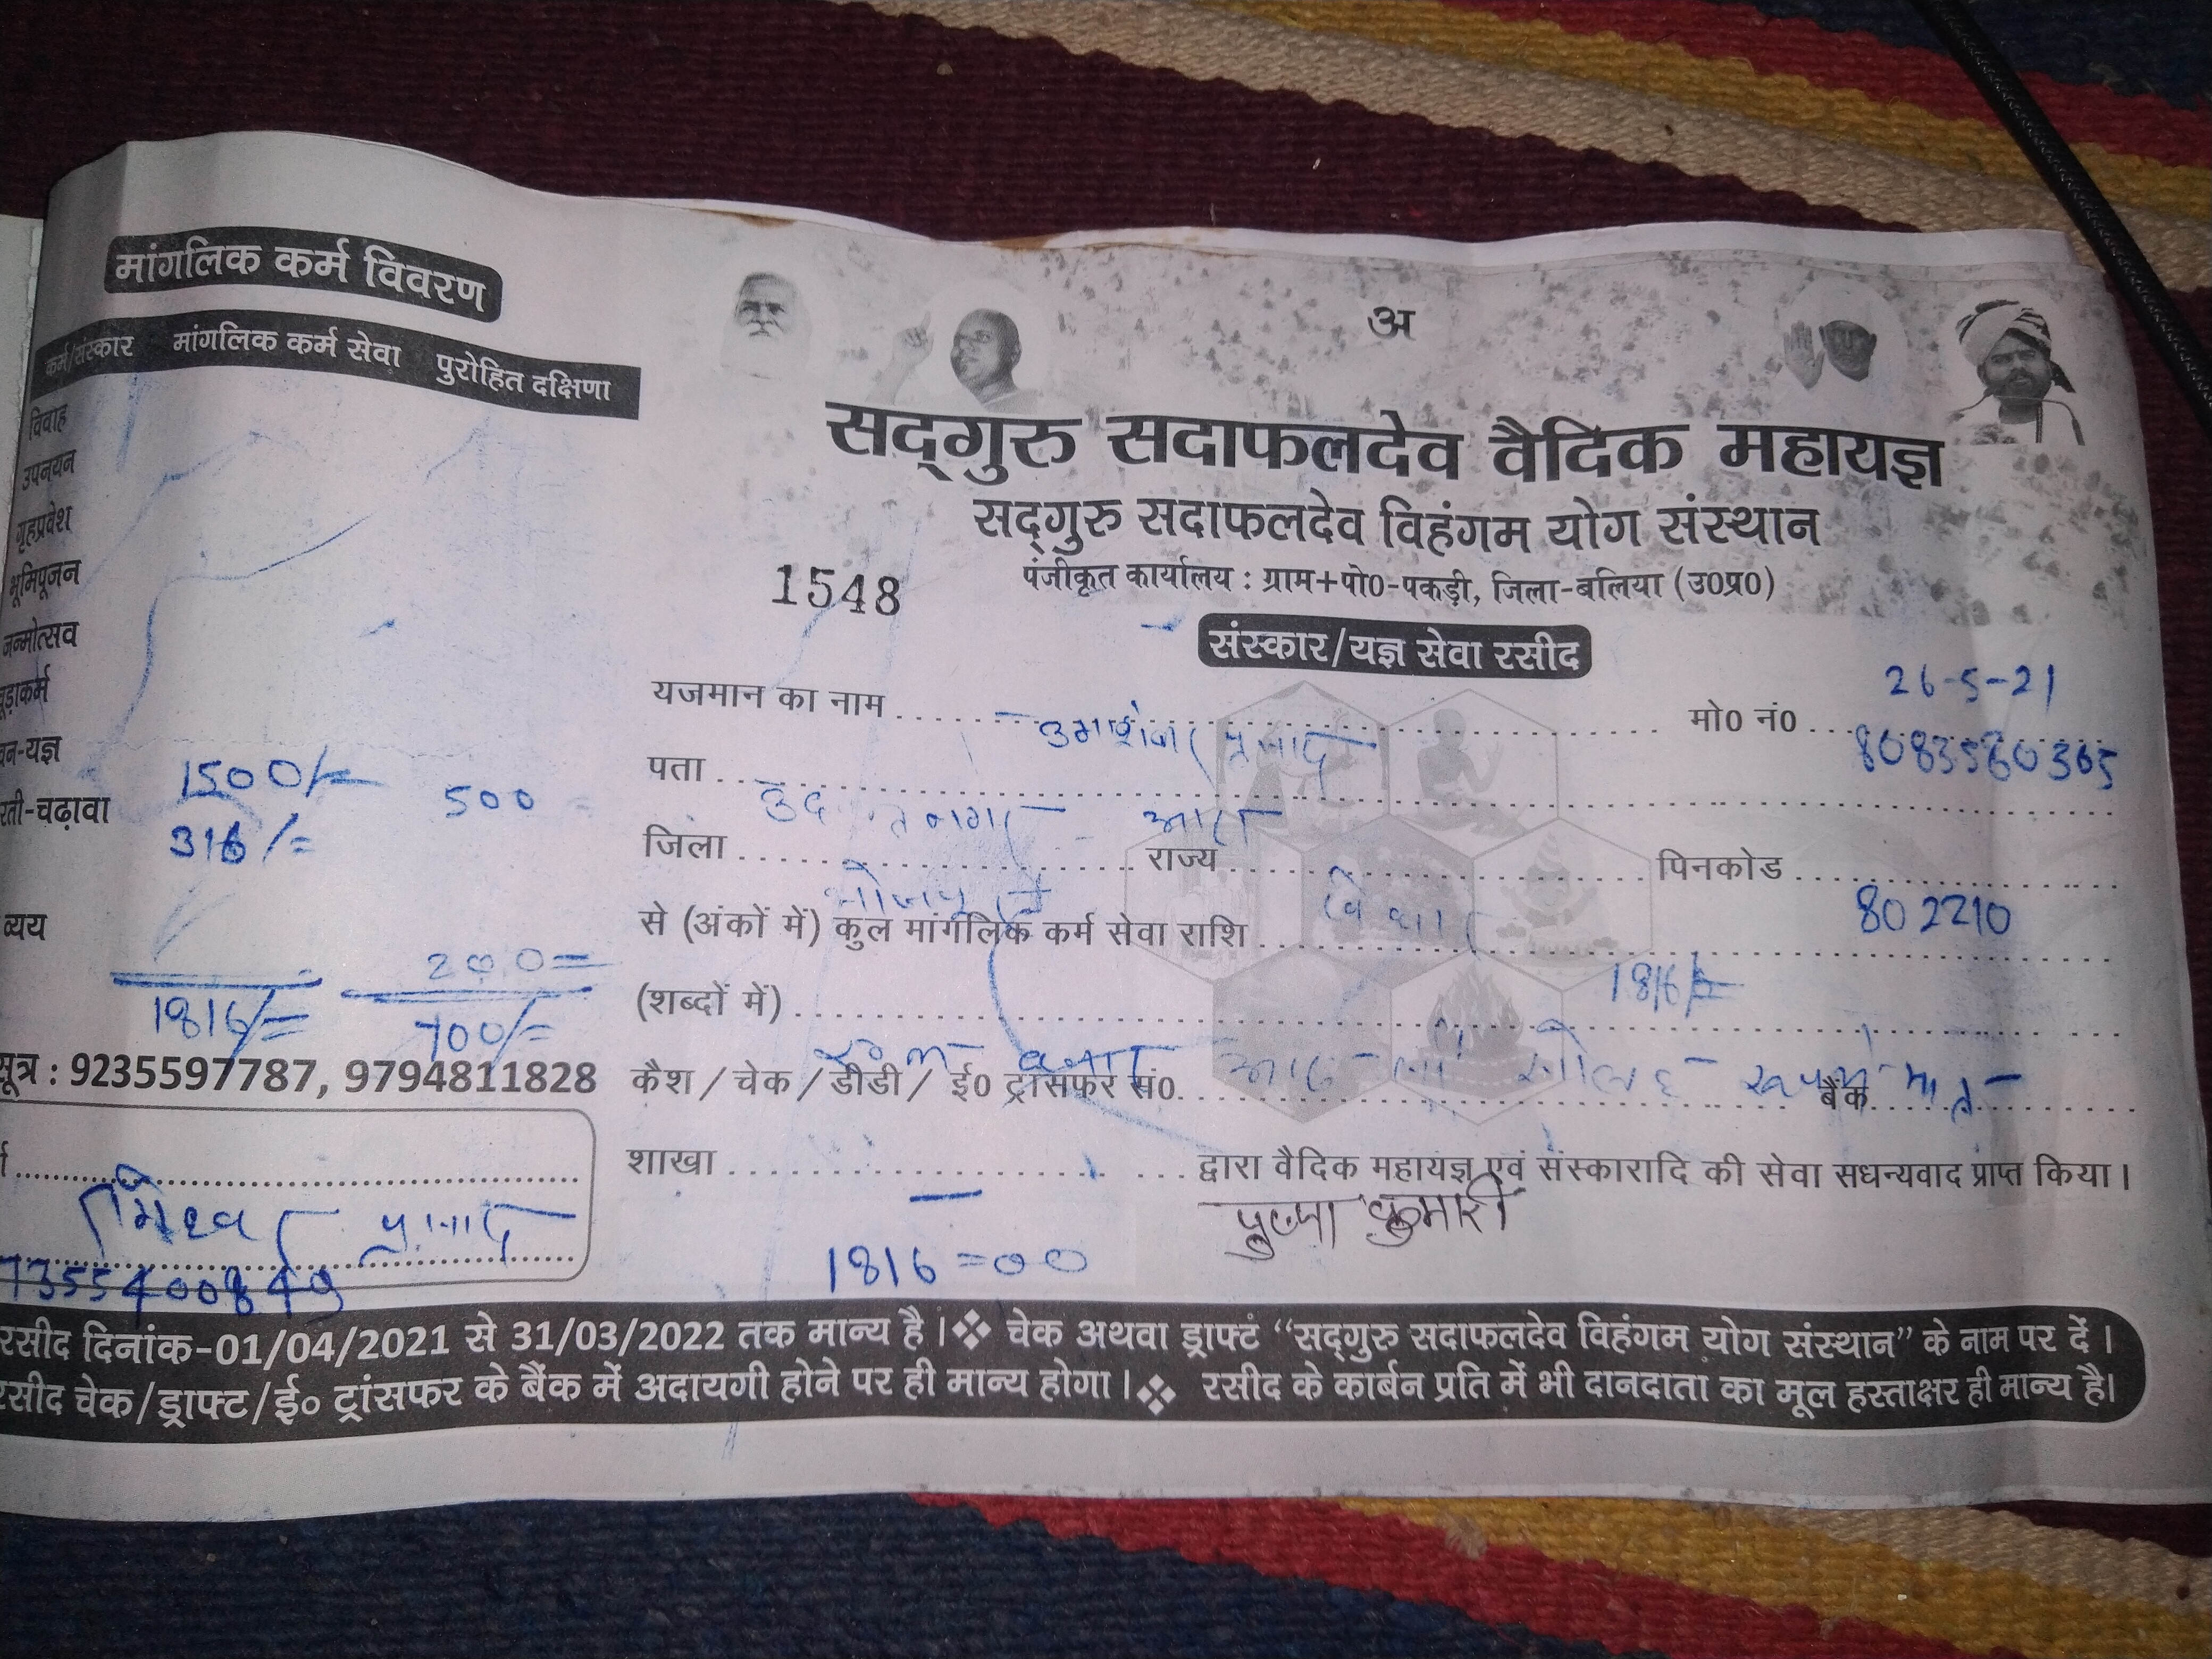 मांगलिक कर्म विवरण
कर्म/संस्कार मांगलिक कर्म सेवा पुरोहित दक्षिणा
विवाह
उपनयन
गृहप्रवेश
भूमिपूजन
जन्मोत्सव
चूड़ाकर्म
वन-यज्ञ
1500/- 500
रती-चढ़ावा
316/=
व्यय
200=
1816/= 700/=
सूत्र : 9235597787, 9794811828
प्रसाद
7355400849
अ
सद्गुरु सदाफलदेव वैदिक महायज्ञ
सद्गुरु सदाफलदेव विहंगम योग संस्थान
पंजीकृत कार्यालय : ग्राम+पो0-पकड़ी, जिला-बलिया (उ0प्र0)
1548
संस्कार/यज्ञ सेवा रसीद
26-5-21
यजमान का नाम उमाशंकर प्रसाद मो0 नं0 8083560365
पता नगर आरा
जिला भोजपुर राज्य बिहार पिनकोड 802210
से (अंकों में) कुल मांगलिक कर्म सेवा राशि 1816/=
(शब्दों में) एक हजार आठ सौ सोलह रूपये मात्र
कैश / चेक / डीडी / ई0 ट्रांसफर सं0 बैंक
शाखा द्वारा वैदिक महायज्ञ एवं संस्कारादि की सेवा सधन्यवाद प्राप्त किया।
1816=00 पुष्पा कुमारी
रसीद दिनांक-01/04/2021 से 31/03/2022 तक मान्य है।❖ चेक अथवा ड्राफ्टं “सद्गुरु सदाफलदेव विहंगम योग संस्थान” के नाम पर दें।
रसीद चेक/ड्राफ्ट/ई० ट्रांसफर के बैंक में अदायगी होने पर ही मान्य होगा।❖ रसीद के कार्बन प्रति में भी दानदाता का मूल हस्ताक्षर ही मान्य है।